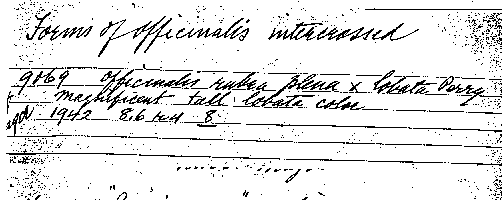 Forms of officinalis intercrossed
9069 officinalis rubra plena x lobata Perry
magnificent tall lobata color
1942 8